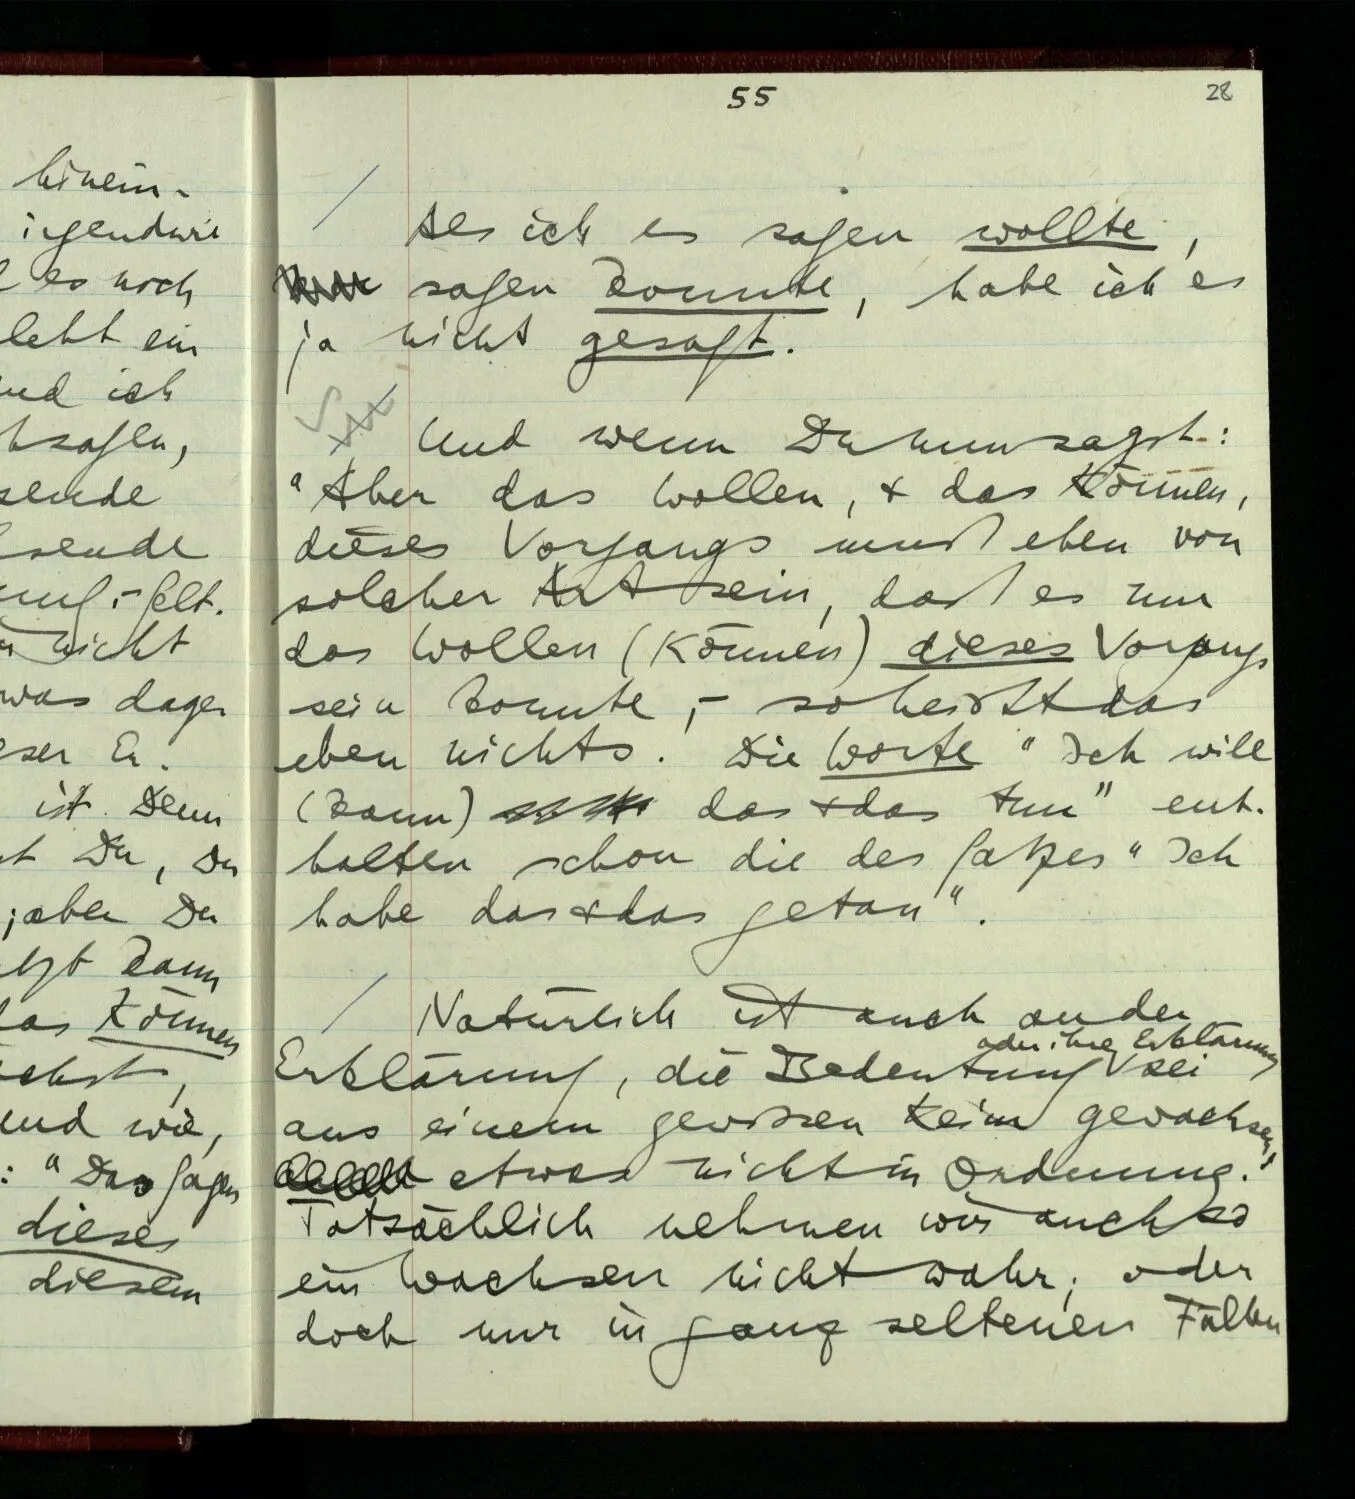 hinein-
irgendwie
es noch
lebt ein
und ich
sagen,
sende
sende
gilt.
nicht
was dage
ser Er.
ist. Denn
Du, Du
; aber Du
kann
das Können
und wie,
: "Das sagen
dieses
diesem
55
28
/ Als ich es sagen wollte,
sagen konnte, habe ich es
ja nicht gesagt.
Und wenn Du nun sagst:
"Aber das Wollen, & das Können,
dieses Vorgangs muß eben von
solcher Art sein, daß es nur
das Wollen (Können) dieses Vorgangs
sein konnte, – so heißt das
eben nichts. Die Worte "Ich will
(kann) das & das tun" ent-
halten schon die des Satzes "Ich
habe das & das getan".
/ Natürlich ist auch an der
oder ihre Erklärung
Erklärung, die Bedeutung sei
aus einem gewissen Keim gewachsen,
etwas nicht in Ordnung.
Tatsächlich nehmen wir auch so
ein Wachsen nicht wahr; oder
doch nur in ganz seltenen Fällen